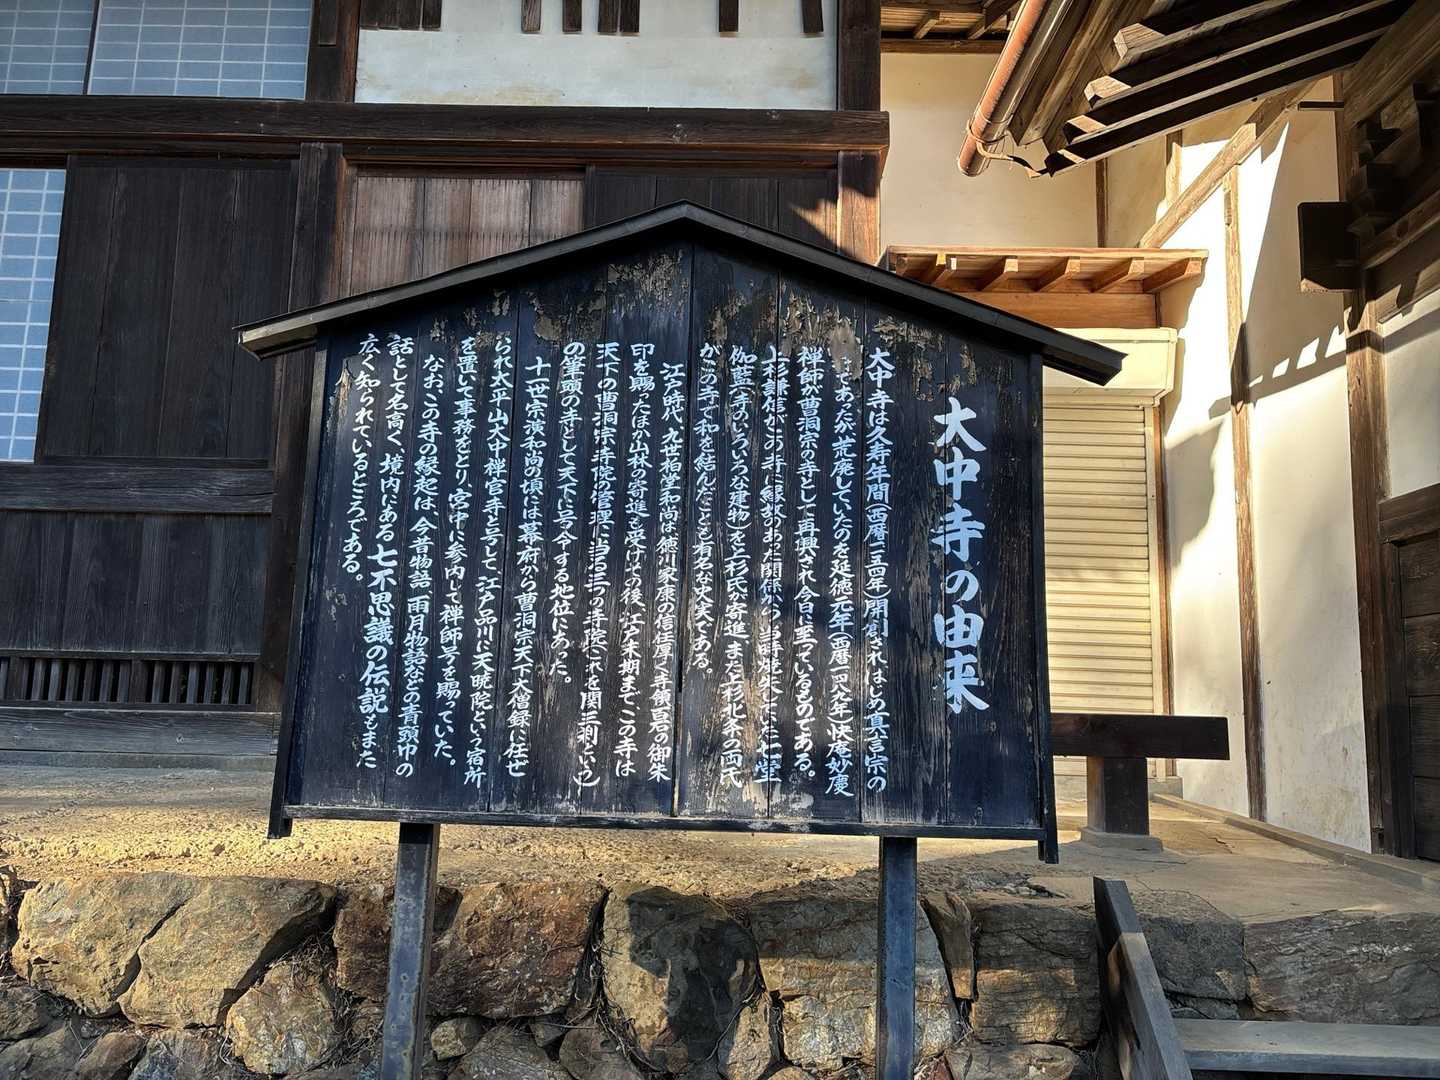 大中寺の由来
大中寺は久寿年間(西暦一一五四年)開創され、はじめ真言宗の
であったが荒廃していたのを延徳元年(西暦一四八九年)快庵妙慶
禅師が曹洞宗の寺として再興され今日に至っているものである。
上杉謙信がこの寺に縁故のあった関係から、当時焼失していた七堂
伽藍(寺のいろいろな建物)を上杉氏が寄進、また上杉北条の両氏
がこの寺で和を結んだことも有名な史実である。
江戸時代、九世柏堂和尚は徳川家康の信任厚く寺領百石の御朱
印を賜ったほか山林の寄進も受けその後、江戸末期まで、この寺は
天下の曹洞宗寺院の管理に当る三つの寺院(これを関三刹という)
の筆頭の寺として天下に号令する地位にあった。
十一世宗演和尚の頃は幕府から曹洞宗天下大僧録に任ぜ
られ太平山大中禅宮寺と号して、江戸品川に天暁院という宿所
を置いて事務をとり、宮中に参内して禅師号を賜っていた。
なお、この寺の縁起は、今昔物語、雨月物語などの青頭巾の
話として名高く、境内にある七不思議の伝説もまた
広く知られているところである。